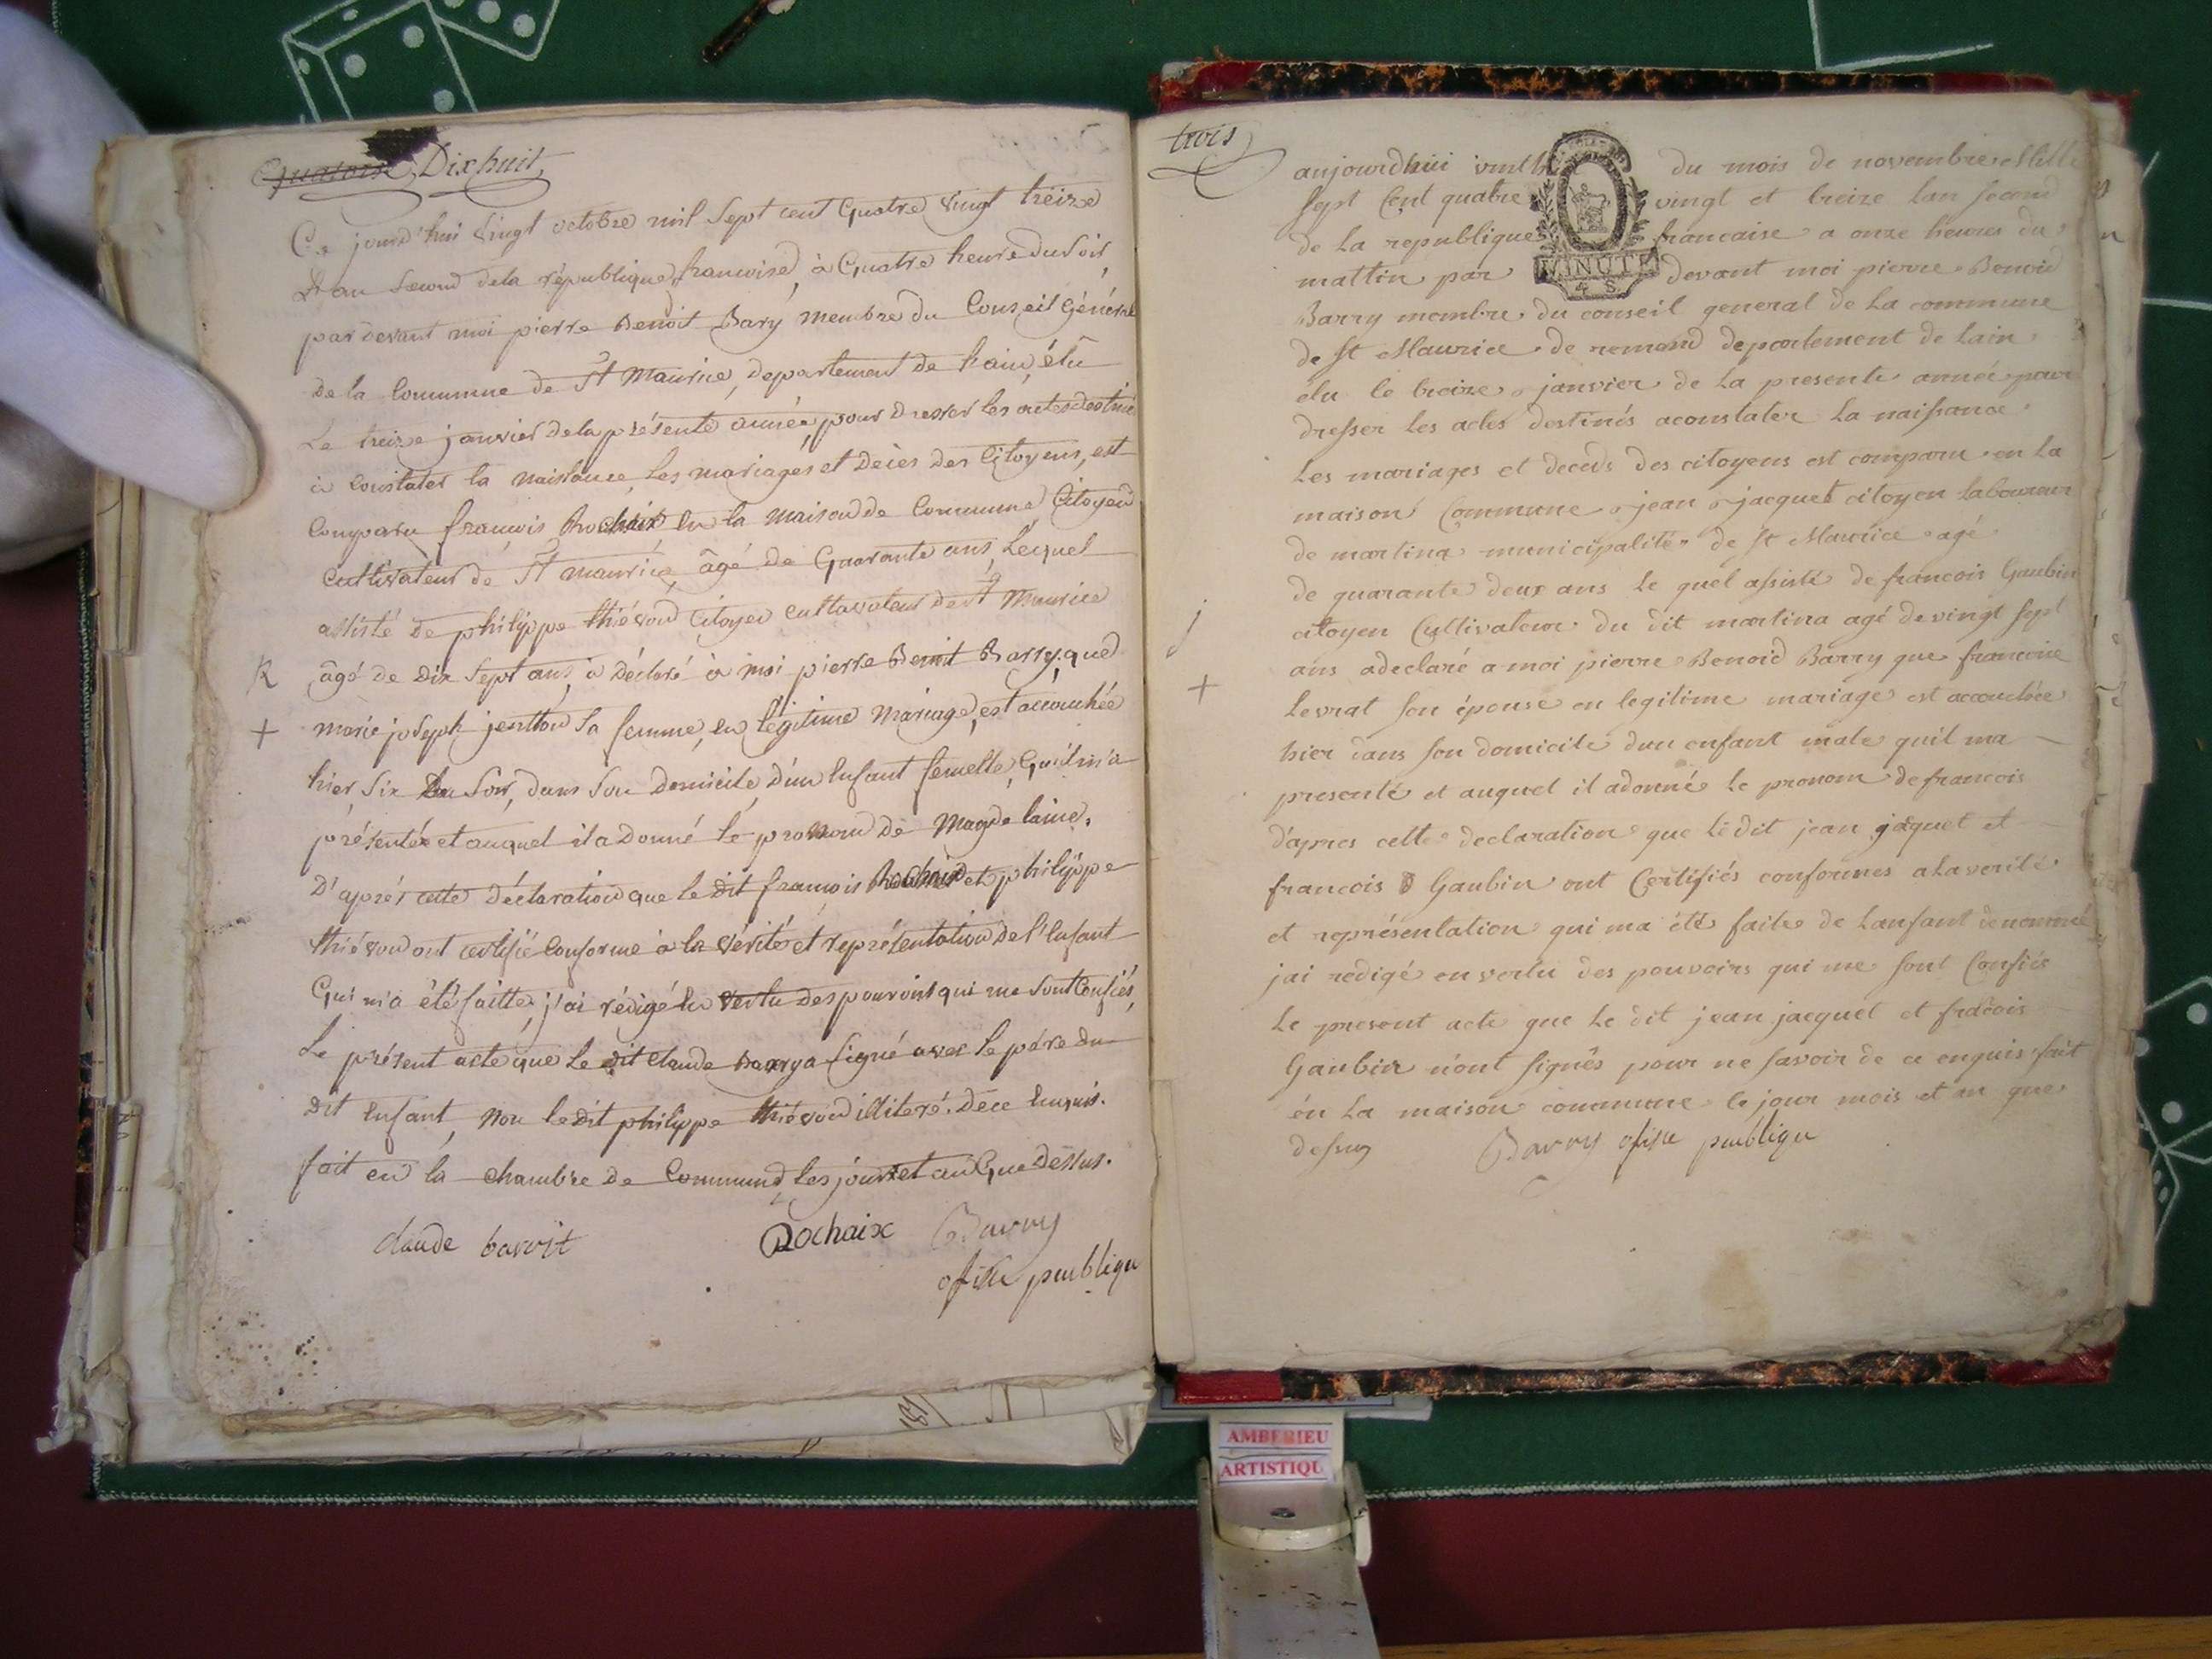 Quatorse Dixhuit
Ce jourd'hui vingt octobre mil sept cent quatre vingt treize
L'an second de la république francoise, à quatre heure du soir,
par devant moi pierre Benoit Bary membre du Conseil général
de la Commune de St Maurice, departement de l'ain, élu
Le treize janvier de la présente année, pour dresser les actes destiné
à Constater la naissance, les mariages et décès des Citoyens, est
Comparu francois Rochaix en la maison de Commune Citoyen
Cultivateur de St maurice, âgé de Quarante ans, Lequel
assisté de philippe thiévon Citoyen cultavateur de St Maurice
R âgé de Dix sept ans, a déclaré à moi pierre Benoit Barry. que
+ marie joseph sa femme, en légitime mariage, est accouchée
hier six du soir, dans son domicile, d'un Enfant femelle, Qu'il m'a
présentée et auquel il a donné le pronom de Magdelaine.
D'aprés cette déclaration que le dit francois Rochaix et philippe
thiévon ont certifié conforme à la vérité et représentation de l'Enfant
Qui m'a été faitte, j'ai rédigé en vertu des pouvoirs qui me sont Confiés,
Le présent acte que le dit Claude a signé avec le pére du
dit Enfant, non le dit philippe thiévon illiteré. de ce Enquis.
fait en la chambre de Commune, les jour et an Que dessus.
claude baroit Rochaix Barry
ofisie publiqu
trois
aujourdhui vint du mois de novembre Mille
sept Cent quatre vingt et treize lan second
de La republique francaise a onze heures du
mattin par MINUTE devant moi pierre Benoid
4 S
Barry membre du conseil general de La commune
de St Maurice de remand departement de Lain
élu le treize janvier de La presente année pour
dresser Les actes destinés aconstater La naissance
Les mariages et deceds des citoyens est comparu en La
maison Commune jean jacquet citoyen Laboureur
de martina municipalité de St Maurice agé
de quarante deux ans le quel assisté de francois Gaubin
j citoyen Cultivateur du dit martina agé de vingt sept
+ ans adeclaré a moi pierre Benoid Barry que francoise
Levrat son épouse en legitime mariage est accouchée
hier dans son domicile dun enfant male quil ma
presenté et auquel il adonné le pronom de francois
d'apres cette declaration que Ledit jean jacquet et
francois Gaubin ont Certifiés conformes alaverité
et représentation qui ma été faite de Lanfant denommé
jai redigé envertu des pouvoirs qui me sont Confiés
Le present acte que Le dit jean jacquet et fracois
Gaubin n'ont signés pour ne savoir de ce enquis fait
én La maison commune le jour mois et an que
dessus Barry ofisie publiqu
AMBERIEU
ARTISTIQU